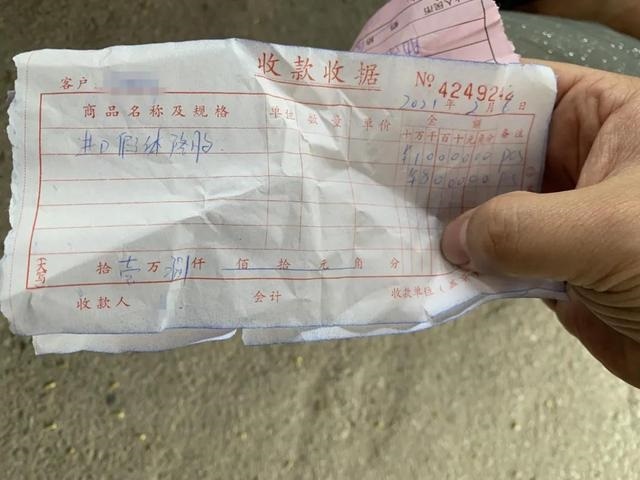 收款收据
客户 № 42492
2021年2月4日
商品名称及规格 单位 数量 单价 金额 备注
十万千百十元角分
进口假体隆胸 ¥1000000 POS
¥800000
大写 拾壹万捌仟 佰 拾 元 角 分
收款人 会计 收款单位
人民币